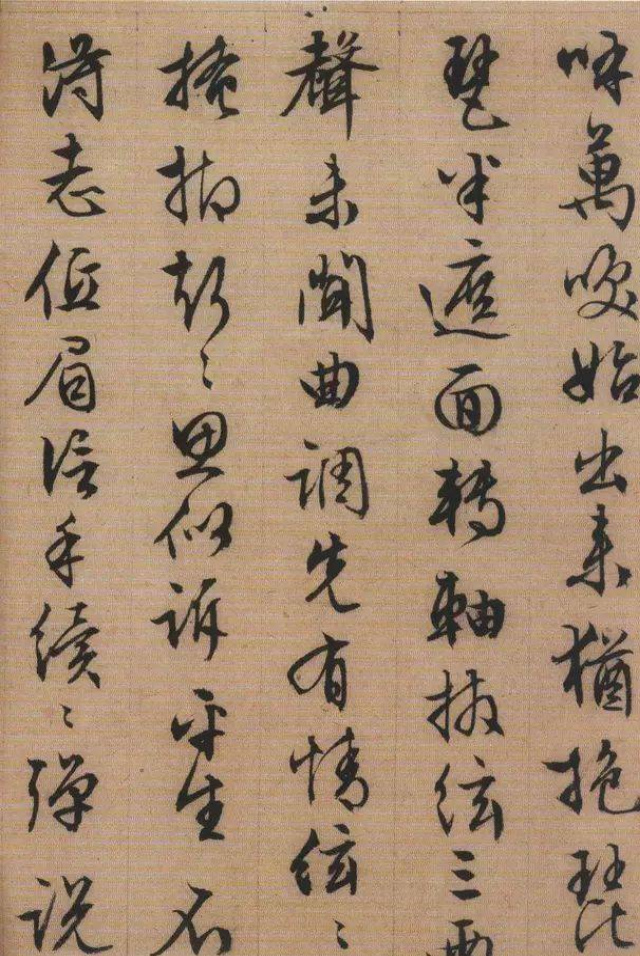 呼萬喚始出來猶抱琵
琶半遮面轉軸撥絃三兩
聲未聞曲調先有情絃〻
掩抑〻思似訴平生不
得志低眉信手續〻彈說